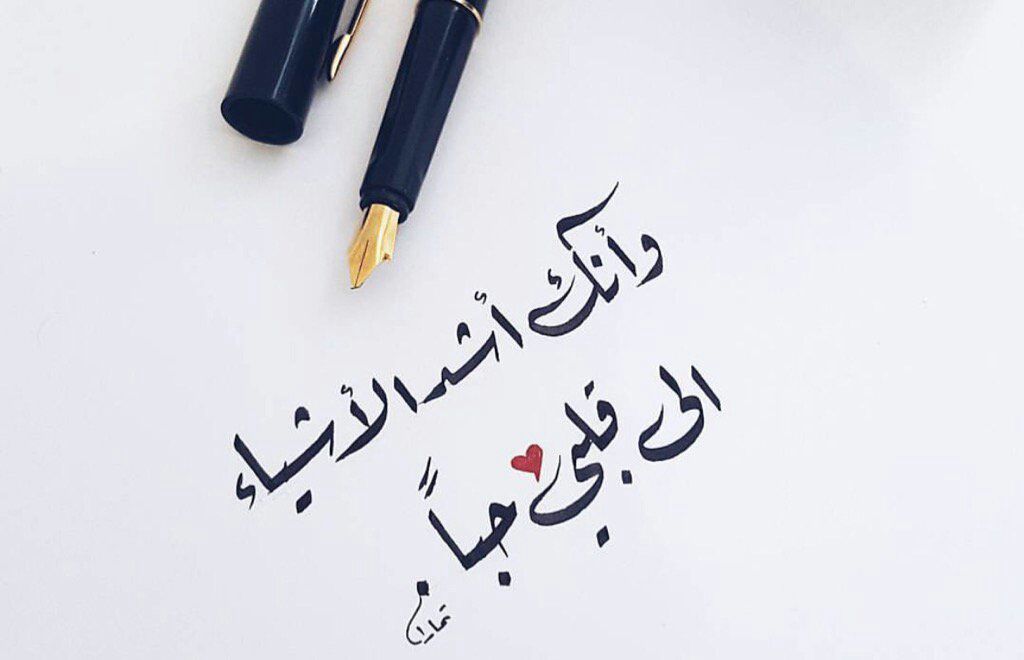 وأنك أشد الأشياء
الى قلبي حباً.